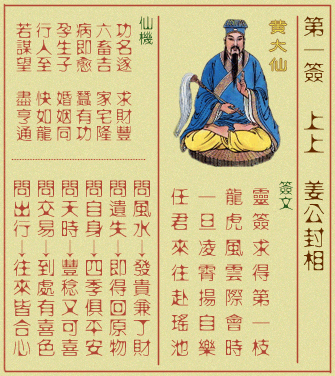 第一簽 上上 姜公封相
黃大仙
簽文
靈簽求得第一枝
龍虎風雲際會時
一旦凌霄揚自樂
任君來往赴瑤池
仙機
功名遂 求財豐
六畜吉 家宅隆
病即愈 蠶有功
孕生子 婚姻同
行人至 快如龍
若謀望 盡亨通
問風水→發貴兼了財
問遺失→即得回原物
問自身→四季俱平安
問天時→豐稔又可喜
問交易→到處有喜色
問出行→往來皆合心